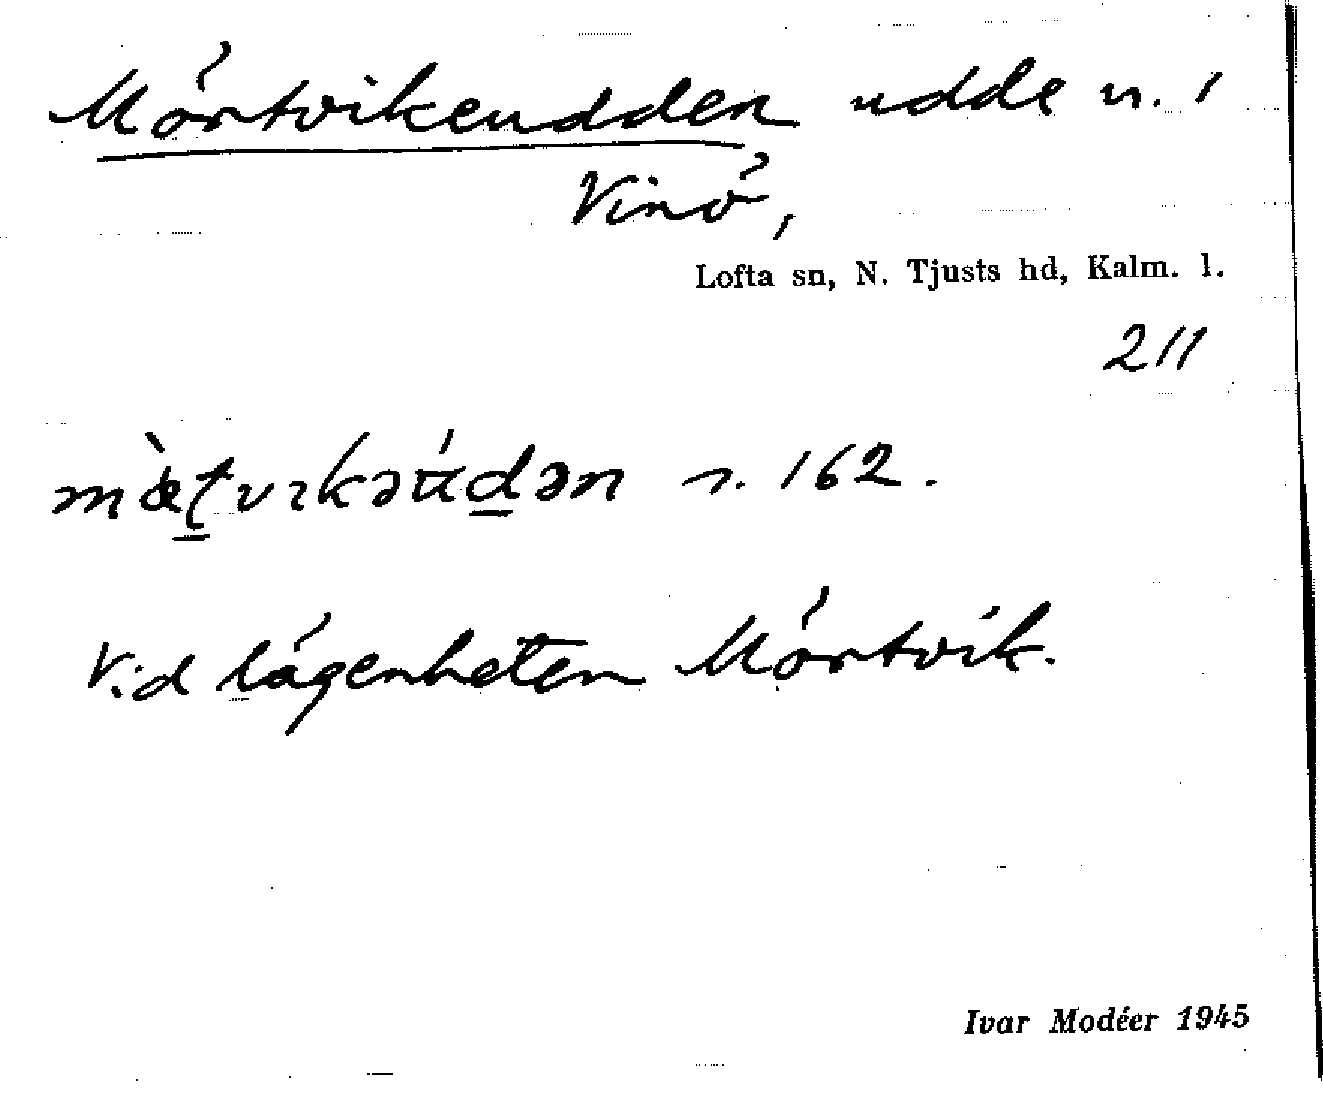 Mörtvikeudden udde n. 1
Vinö,
Lofta sn, N. Tjusts hd, Kalm. l.
211
n. 162.
Vid lägenheten Mörtvik.
Ivar Modéer 1945